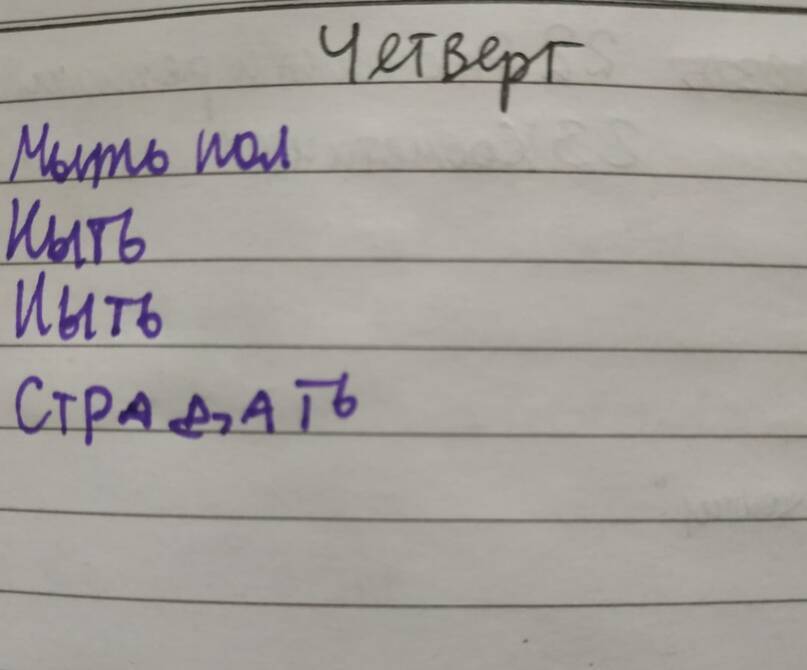 Четверг
Мыть пол
Ныть
Ныть
СТРАДАТЬ